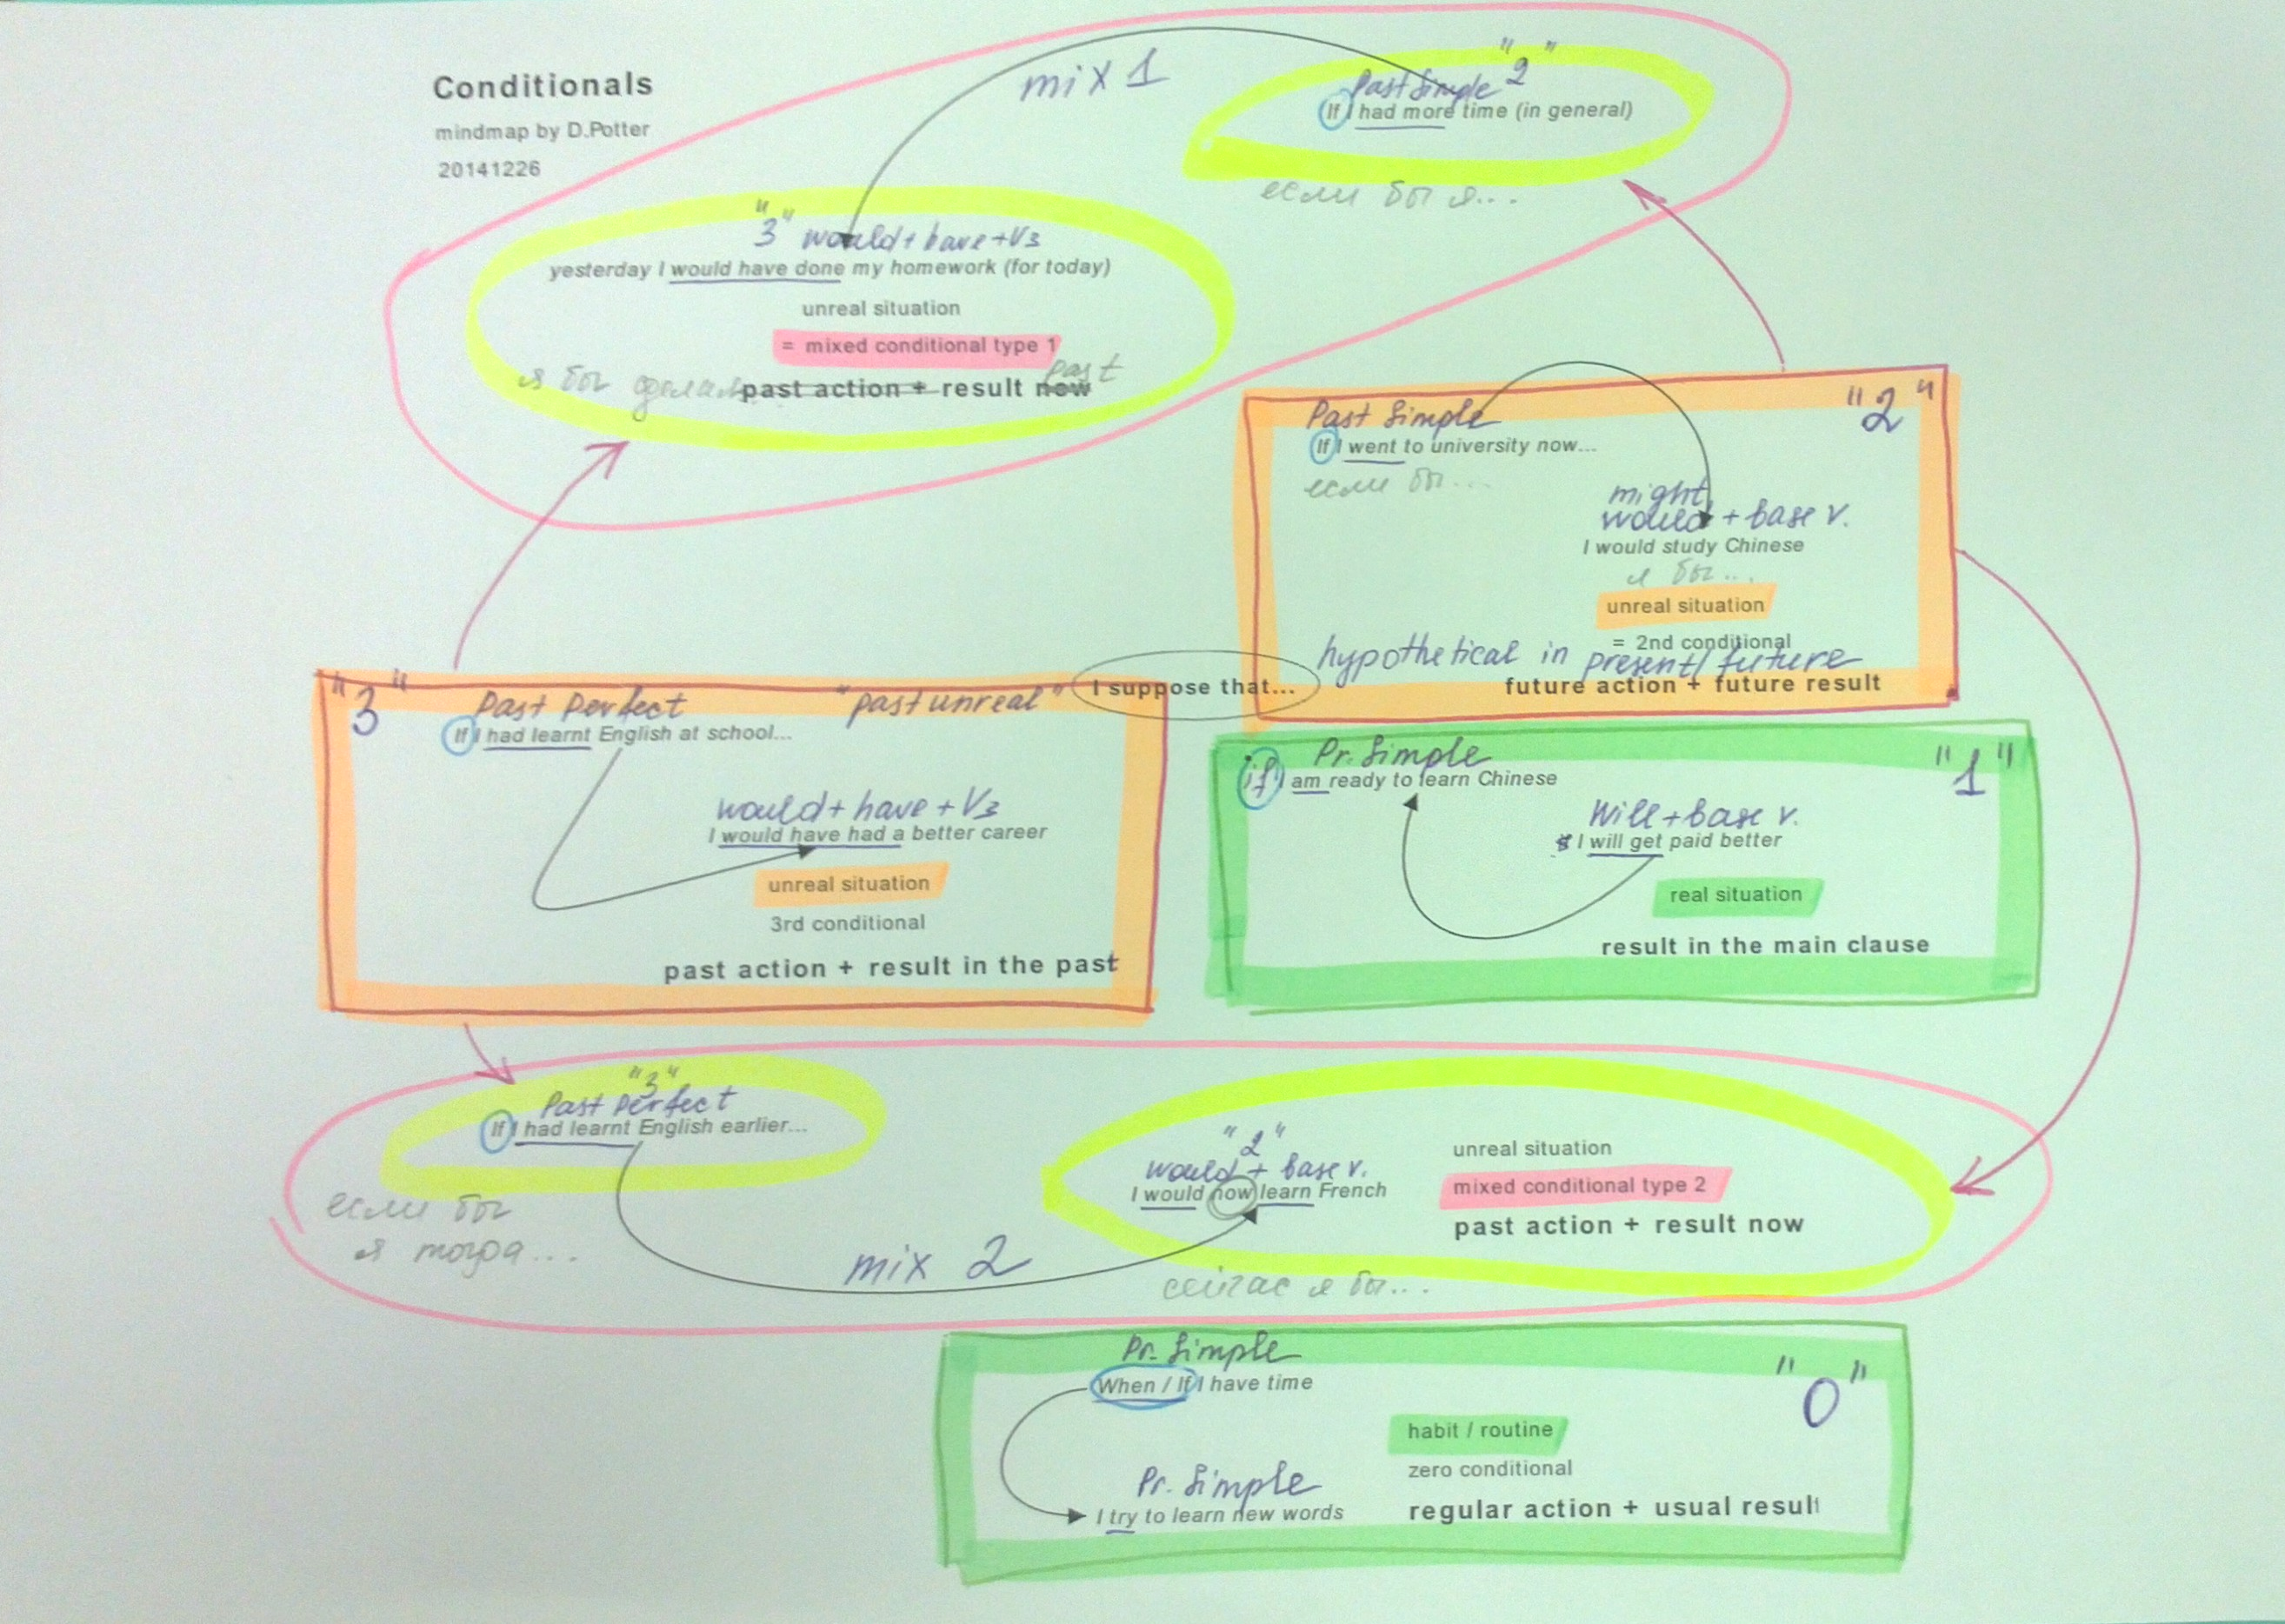 Conditionals
mindmap by D.Potter
20141226
mix 1
"2"
Past Simple
If I had more time (in general)
если бы я...
"3" would + have + V3
yesterday I would have done my homework (for today)
unreal situation
= mixed conditional type 1
past
я бы сделал
past action + result now
"2"
Past Simple
If I went to university now...
если бы...
might
would + base v.
I would study Chinese
я бы...
unreal situation
= 2nd conditional
hypothetical in present/future
future action + future result
I suppose that...
"3"
Past Perfect
"past unreal"
If I had learnt English at school...
would + have + V3
I would have had a better career
unreal situation
3rd conditional
past action + result in the past
"1"
Pr. Simple
if I am ready to learn Chinese
Will + base v.
I will get paid better
real situation
result in the main clause
"3"
Past Perfect
If I had learnt English earlier...
если бы
я тогда...
mix 2
"2"
would + base v.
I would now learn French
сейчас я бы...
unreal situation
mixed conditional type 2
past action + result now
Pr. Simple
When / If I have time
"0"
habit / routine
zero conditional
regular action + usual result
Pr. Simple
I try to learn new words